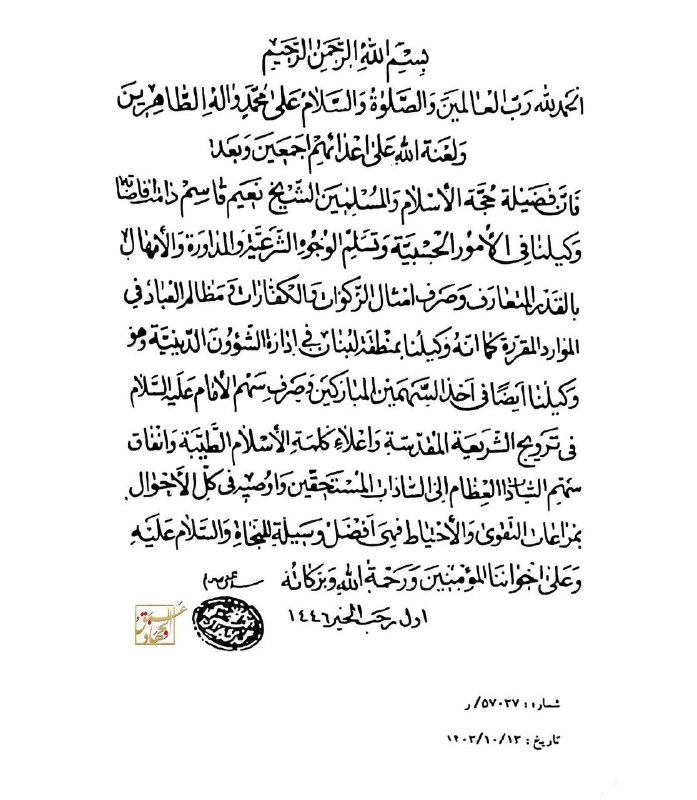 بسم الله الرحمن الرحيم
الحمد لله رب العالمين والصلوة والسلام على محمد واله الطاهرين
ولعنة الله على اعدائهم اجمعين وبعد
فان فضيلة حجة الاسلام والمسلمين الشيخ نعيم قاسم دامت افاضاته
وكيلنا في الأمور الحسبية وتسلم الوجوه الشرعية والمداورة والأمهال
بالقدر المتعارف وصرف امثال الزكوات والكفارات ومظالم العباد في
الموارد المقررة كما انه وكيلنا بمنطقة لبنان في ادارة الشؤون الدينية وهو
وكيلنا ايضًا في اخذ السهمين المباركين وصرف سهم الامام عليه السلام
في ترويج الشريعة المقدسة واعلاء كلمة الأسلام الطيبة وانفاق
سهم السادات العظام الى السادات المستحقين واوصيه في كل الأحوال
بمراعات التقوى والأحتياط فهى افضل وسيلة للنجاة والسلام عليه
وعلى اخواننا المؤمنين ورحمة الله وبركاته
اول رجب الخير ١٤٤٦
شماره: ٥٧٠٢٧/ر
تاريخ: ١٤٠٣/١٠/١٣